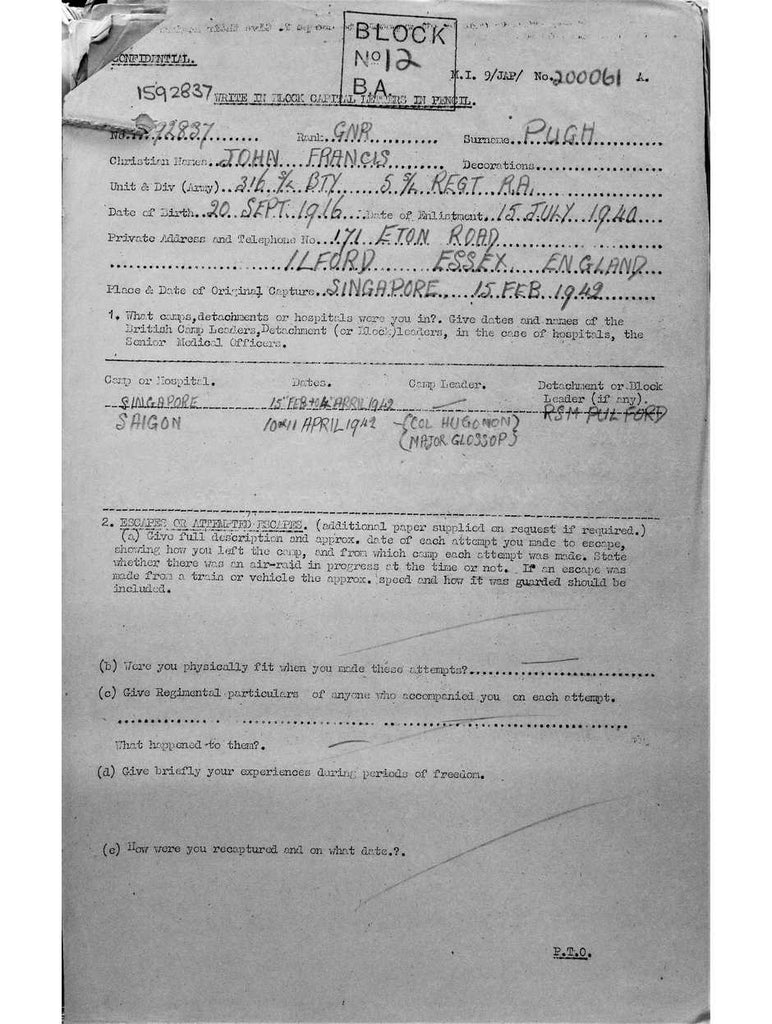 BLOCK
No 12
B.A.
CONFIDENTIAL.
M.I. 9/JAP/ No. 200061 A.
1592837 WRITE IN BLOCK CAPITAL LETTERS IN PENCIL.
No. 1592837 Rank GNR Surname PUGH
Christian Names JOHN FRANCIS Decorations
Unit & Div (Army) 316 S/L BTY 5 S/L REGT R.A.
Date of Birth 20 SEPT. 1916 Date of Enlistment 15 JULY 1940
Private Address and Telephone No. 171 ETON ROAD
ILFORD ESSEX ENGLAND
Place & Date of Original Capture SINGAPORE 15 FEB 1942
1. What camps, detachments or hospitals were you in?. Give dates and names of the
British Camp Leaders, Detachment (or Block) leaders, in the case of hospitals, the
Senior Medical Officers.
Camp or Hospital. Dates. Camp Leader. Detachment or Block
Leader (if any).
SINGAPORE 15 FEB to 4 APRIL 1942 — RSM PULFORD
SAIGON APRIL 1942 (COL HUGONON)
(MAJOR GLOSSOP)
2. ESCAPES OR ATTEMPTED ESCAPES. (additional paper supplied on request if required.)
(a) Give full description and approx. date of each attempt you made to escape,
showing how you left the camp, and from which camp each attempt was made. State
whether there was an air-raid in progress at the time or not. If an escape was
made from a train or vehicle the approx. speed and how it was guarded should be
included.
(b) Were you physically fit when you made these attempts?
(c) Give Regimental particulars of anyone who accompanied you on each attempt.
What happened to them?.
(d) Give briefly your experiences during periods of freedom.
(e) How were you recaptured and on what date.?.
P.T.O.